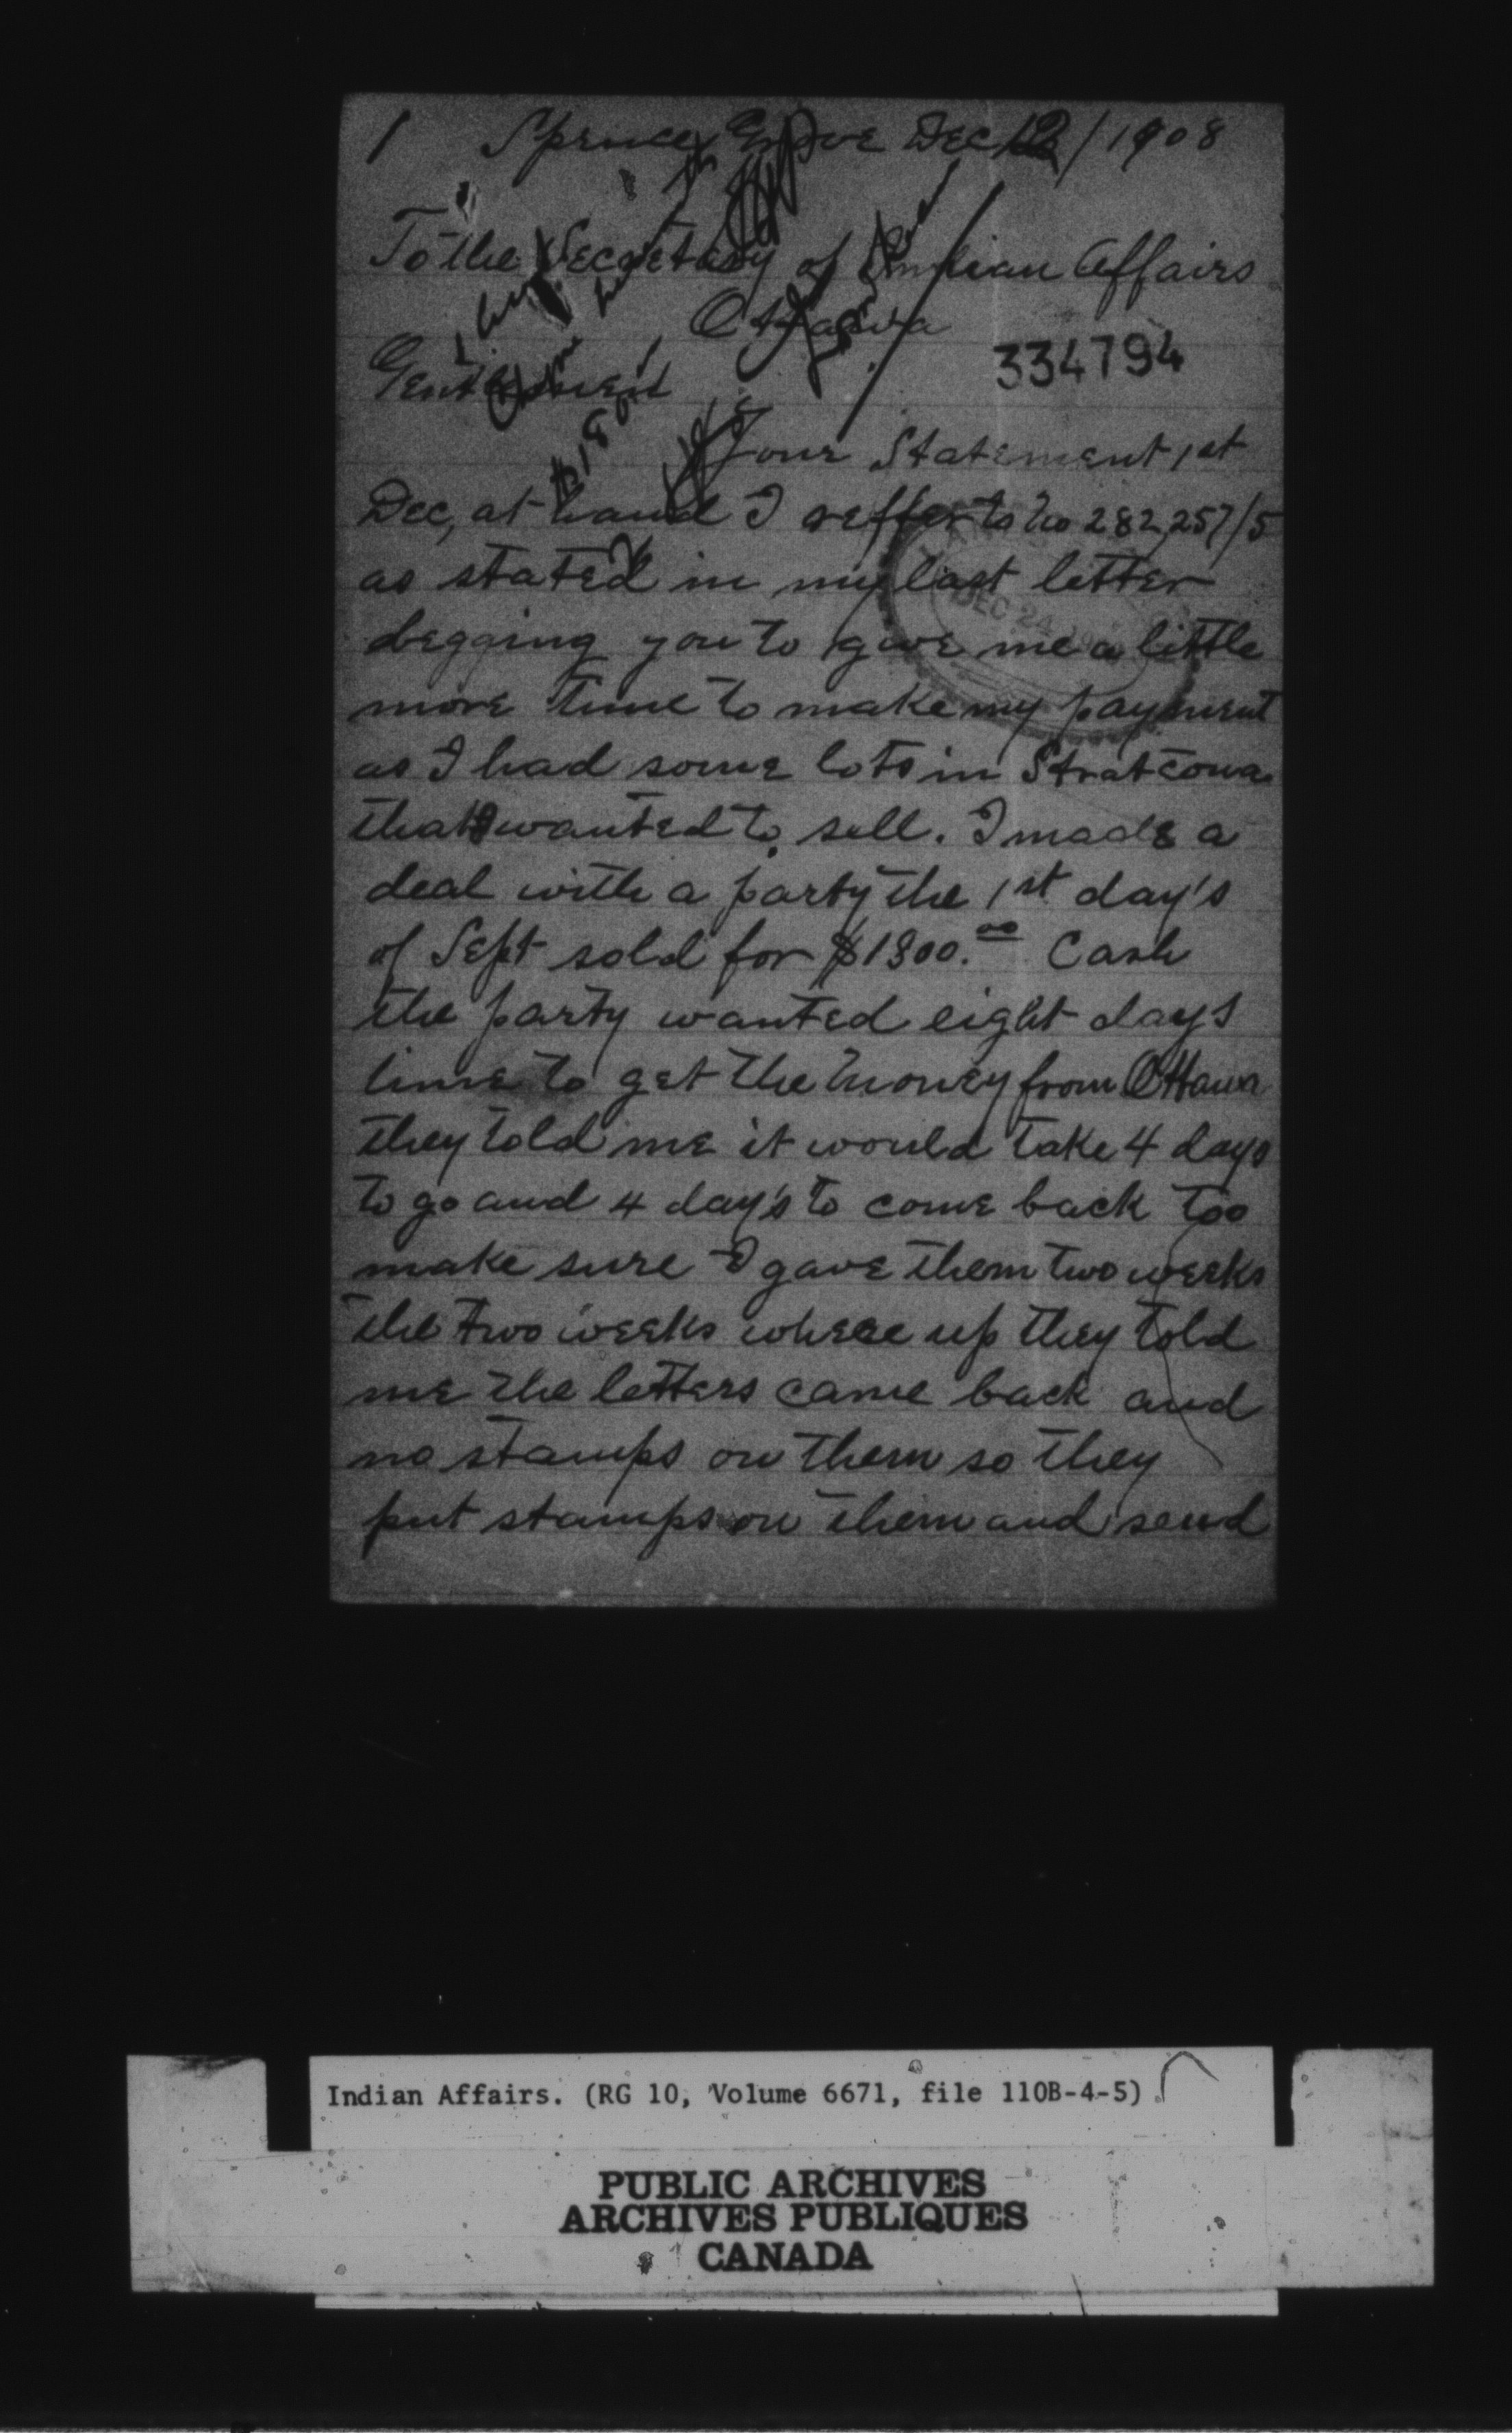 1 Spruce Grove Dec 12/1908
To the Secretary of Indian Affairs
Ottawa
334794
Gentlemen
Your Statement 1st
Dec, at hand I reffer to No 282,257/5
as stated in my last letter
begging you to give me a little
DEC 24
more time to make my payment
as I had some lots in Stratcona
that I wanted to sell. I made a
deal with a party the 1st day's
of Sept sold for $1800.00 Cash
the party wanted eight days
time to get the money from Ottawa
they told me it would take 4 days
to go and 4 day's to come back too
make sure I gave them two weeks
the two weeks where up they told
me the letters came back and
no stamps on them so they
put stamps on them and send
Indian Affairs. (RG 10, Volume 6671, file 110B-4-5)
PUBLIC ARCHIVES
ARCHIVES PUBLIQUES
CANADA